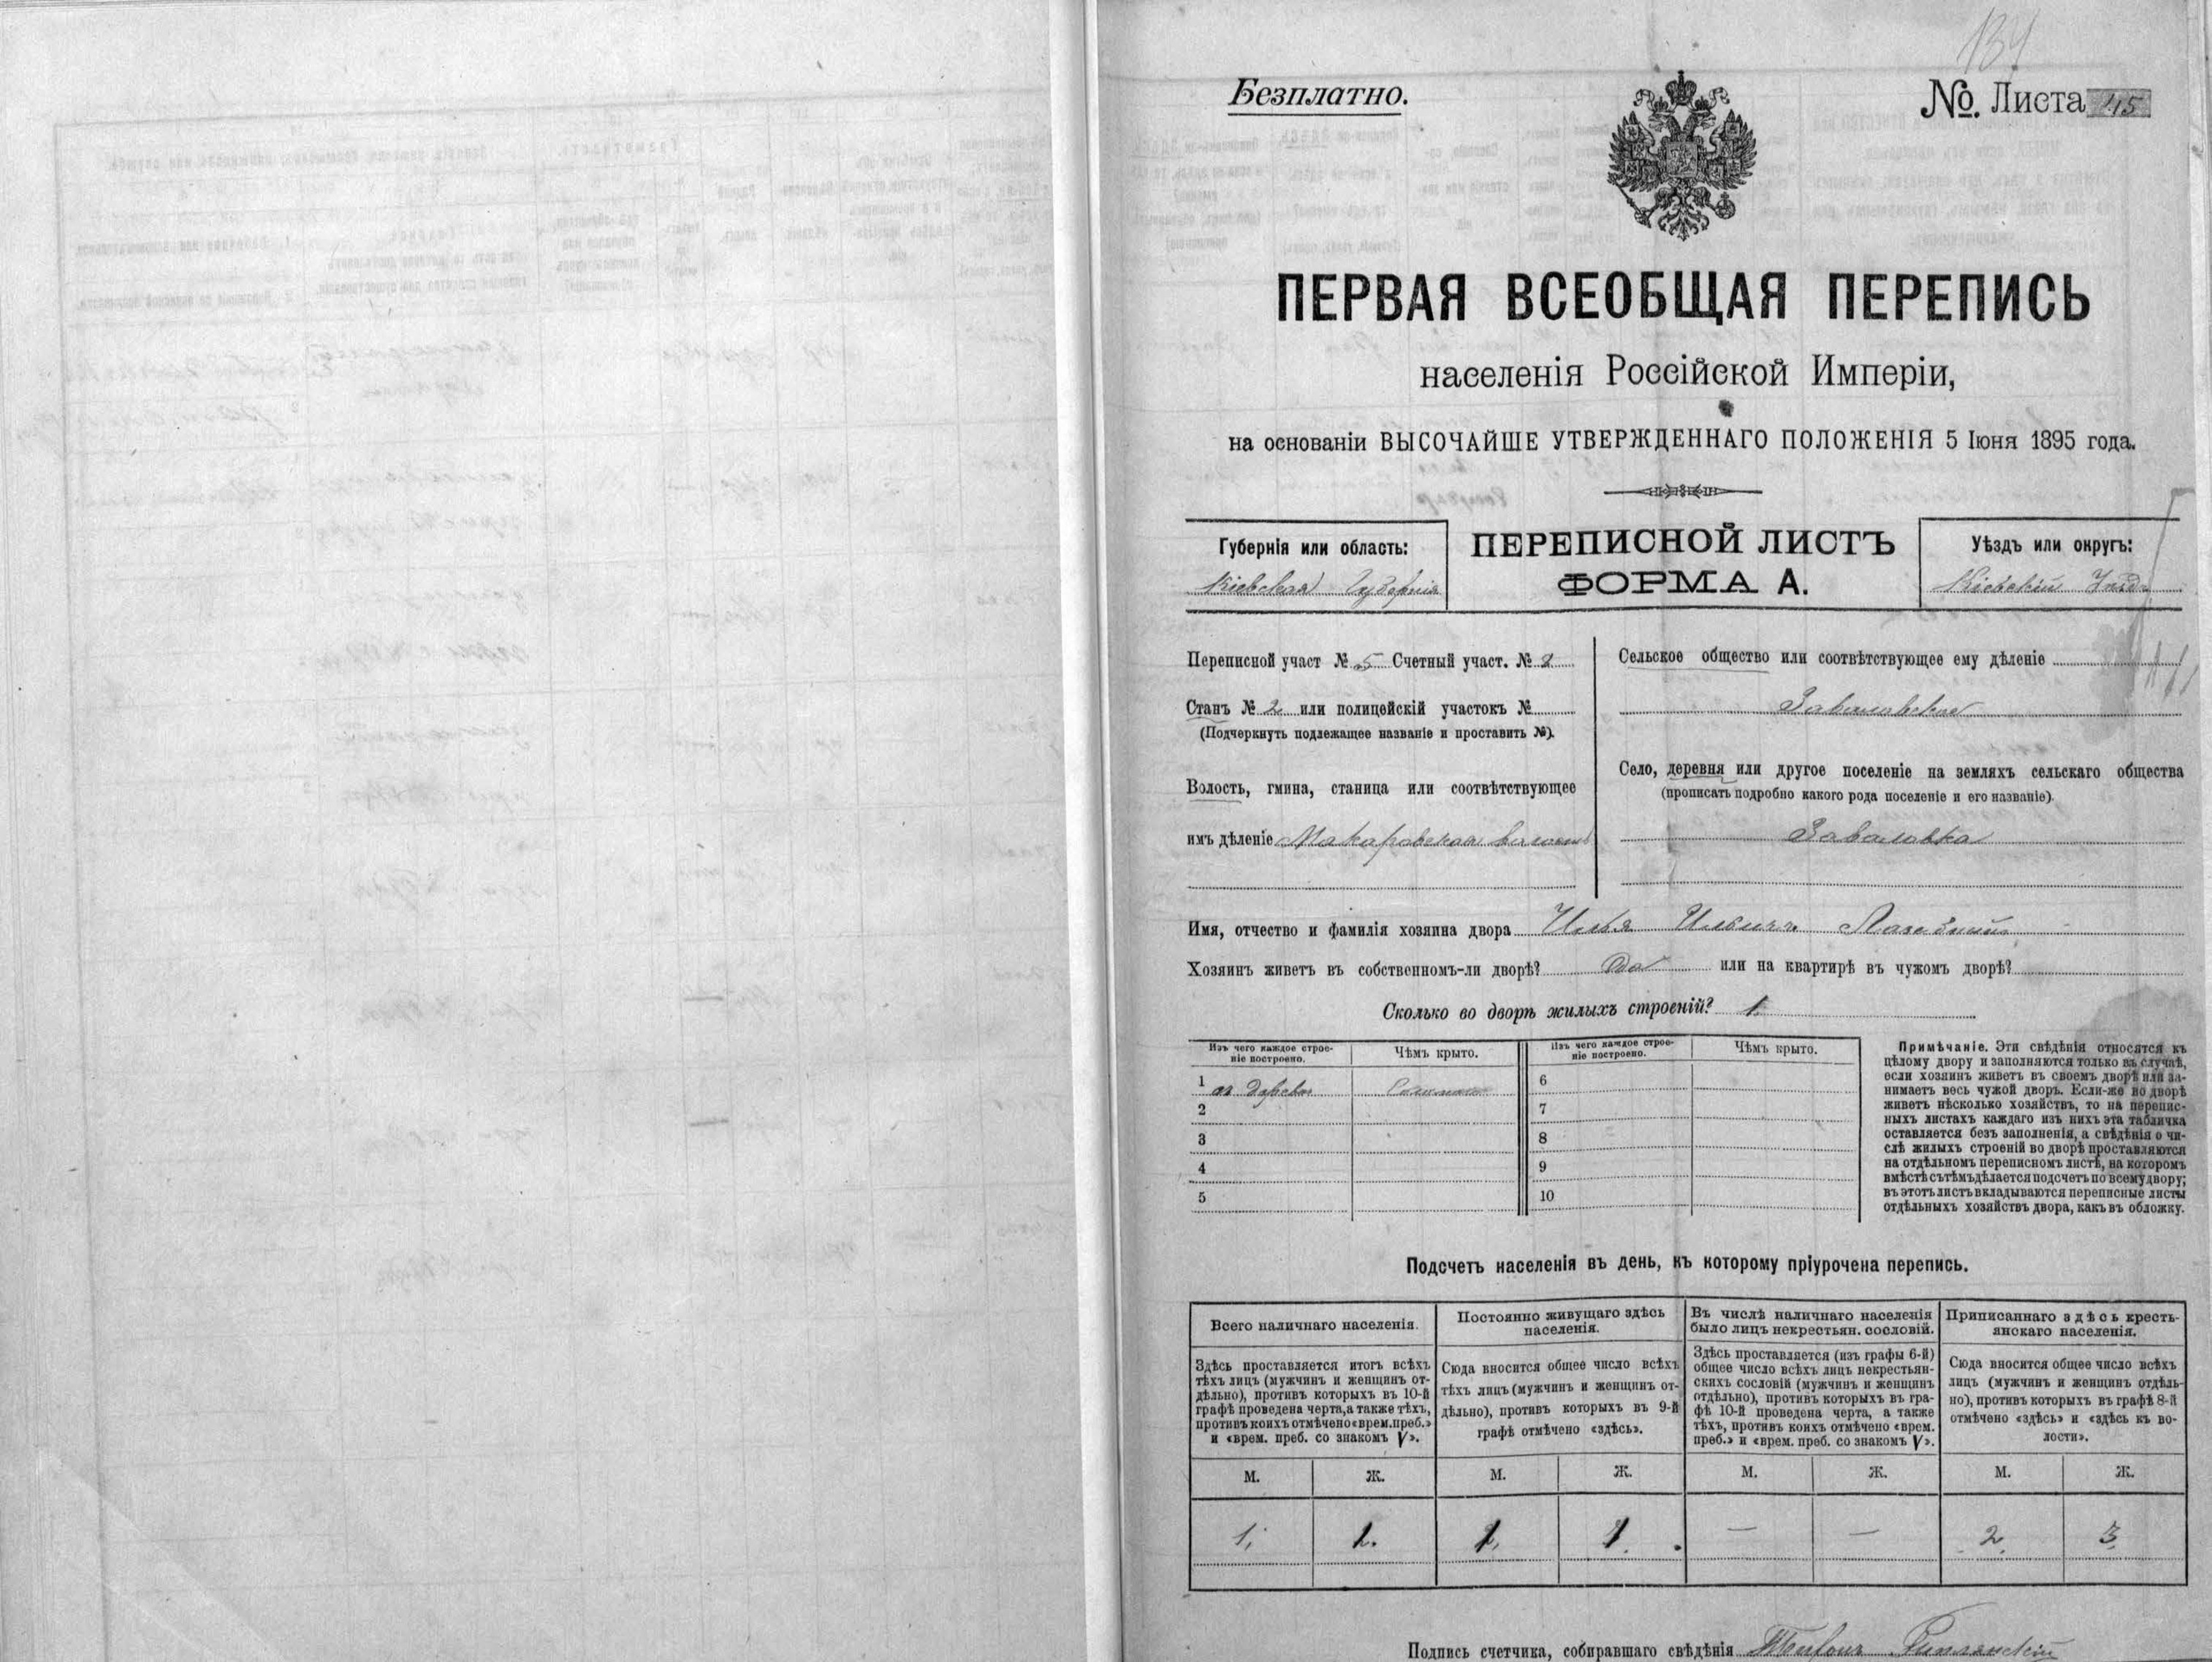 134
Безплатно.
№. Листа 45
ПЕРВАЯ ВСЕОБЩАЯ ПЕРЕПИСЬ
населенія Россійской Имперіи,
на основаніи ВЫСОЧАЙШЕ УТВЕРЖДЕННАГО ПОЛОЖЕНІЯ 5 Іюня 1895 года.
Губернія или область:
Кіевская Губернія
ПЕРЕПИСНОЙ ЛИСТЪ
ФОРМА А.
Уѣздъ или округъ:
Кіевскій Уѣздъ
Переписной участ № 5 Счетный участ. № 2
Станъ № 2 или полицейскій участокъ №
(Подчеркнуть подлежащее названіе и проставить №).
Волость, гмина, станица или соотвѣтствующее
имъ дѣленіе Макаровская волость
Сельское общество или соотвѣтствующее ему дѣленіе
Заваловское
Село, деревня или другое поселеніе на земляхъ сельскаго общества
(прописать подробно какого рода поселеніе и его названіе).
Заваловка
Имя, отчество и фамилія хозяина двора Илья Ильичъ
Хозяинъ живетъ въ собственномъ-ли дворѣ? Да или на квартирѣ въ чужомъ дворѣ?
Сколько во дворѣ жилыхъ строеній? 1.
Изъ чего каждое строе-
ніе построено.
Чѣмъ крыто.
Изъ чего каждое строе-
ніе построено.
Чѣмъ крыто.
1 из дерева Соломою
2
3
4
5
6
7
8
9
10
Примѣчаніе. Эти свѣдѣнія относятся къ
цѣлому двору и заполняются только въ случаѣ,
если хозяинъ живетъ въ своемъ дворѣ или за-
нимаетъ весь чужой дворъ. Если-же во дворѣ
живетъ нѣсколько хозяйствъ, то на перепис-
ныхъ листахъ каждаго изъ нихъ эта табличка
оставляется безъ заполненія, а свѣдѣнія о чи-
слѣ жилыхъ строеній во дворѣ проставляются
на отдѣльномъ переписномъ листѣ, на которомъ
вмѣстѣ съ тѣмъ дѣлается подсчетъ по всему двору;
въ этотъ листъ вкладываются переписные листы
отдѣльныхъ хозяйствъ двора, какъ въ обложку.
Подсчетъ населенія въ день, къ которому пріурочена перепись.
Всего наличнаго населенія.
Здѣсь проставляется итогъ всѣхъ
тѣхъ лицъ (мужчинъ и женщинъ от-
дѣльно), противъ которыхъ въ 10-й
графѣ проведена черта, а также тѣхъ,
противъ коихъ отмѣчено «врем. преб.»
и «врем. преб. со знакомъ V».
Постоянно живущаго здѣсь
населенія.
Сюда вносится общее число всѣхъ
тѣхъ лицъ (мужчинъ и женщинъ от-
дѣльно), противъ которыхъ въ 9-й
графѣ отмѣчено «здѣсь».
Въ числѣ наличнаго населенія
было лицъ некрестьян. сословій.
Здѣсь проставляется (изъ графы 6-й)
общее число всѣхъ лицъ некрестьян-
скихъ сословій (мужчинъ и женщинъ
отдѣльно), противъ которыхъ въ гра-
фѣ 10-й проведена черта, а также
тѣхъ, противъ коихъ отмѣчено «врем.
преб.» и «врем. преб. со знакомъ V».
Приписаннаго здѣсь кресть-
янскаго населенія.
Сюда вносится общее число всѣхъ
лицъ (мужчинъ и женщинъ отдѣль-
но), противъ которыхъ въ графѣ 8-й
отмѣчено «здѣсь» и «здѣсь къ во-
лости».
М. Ж. М. Ж. М. Ж. М. Ж.
1. 1. 1. 1. — — 2. 3.
Подпись счетчика, собиравшаго свѣдѣнія